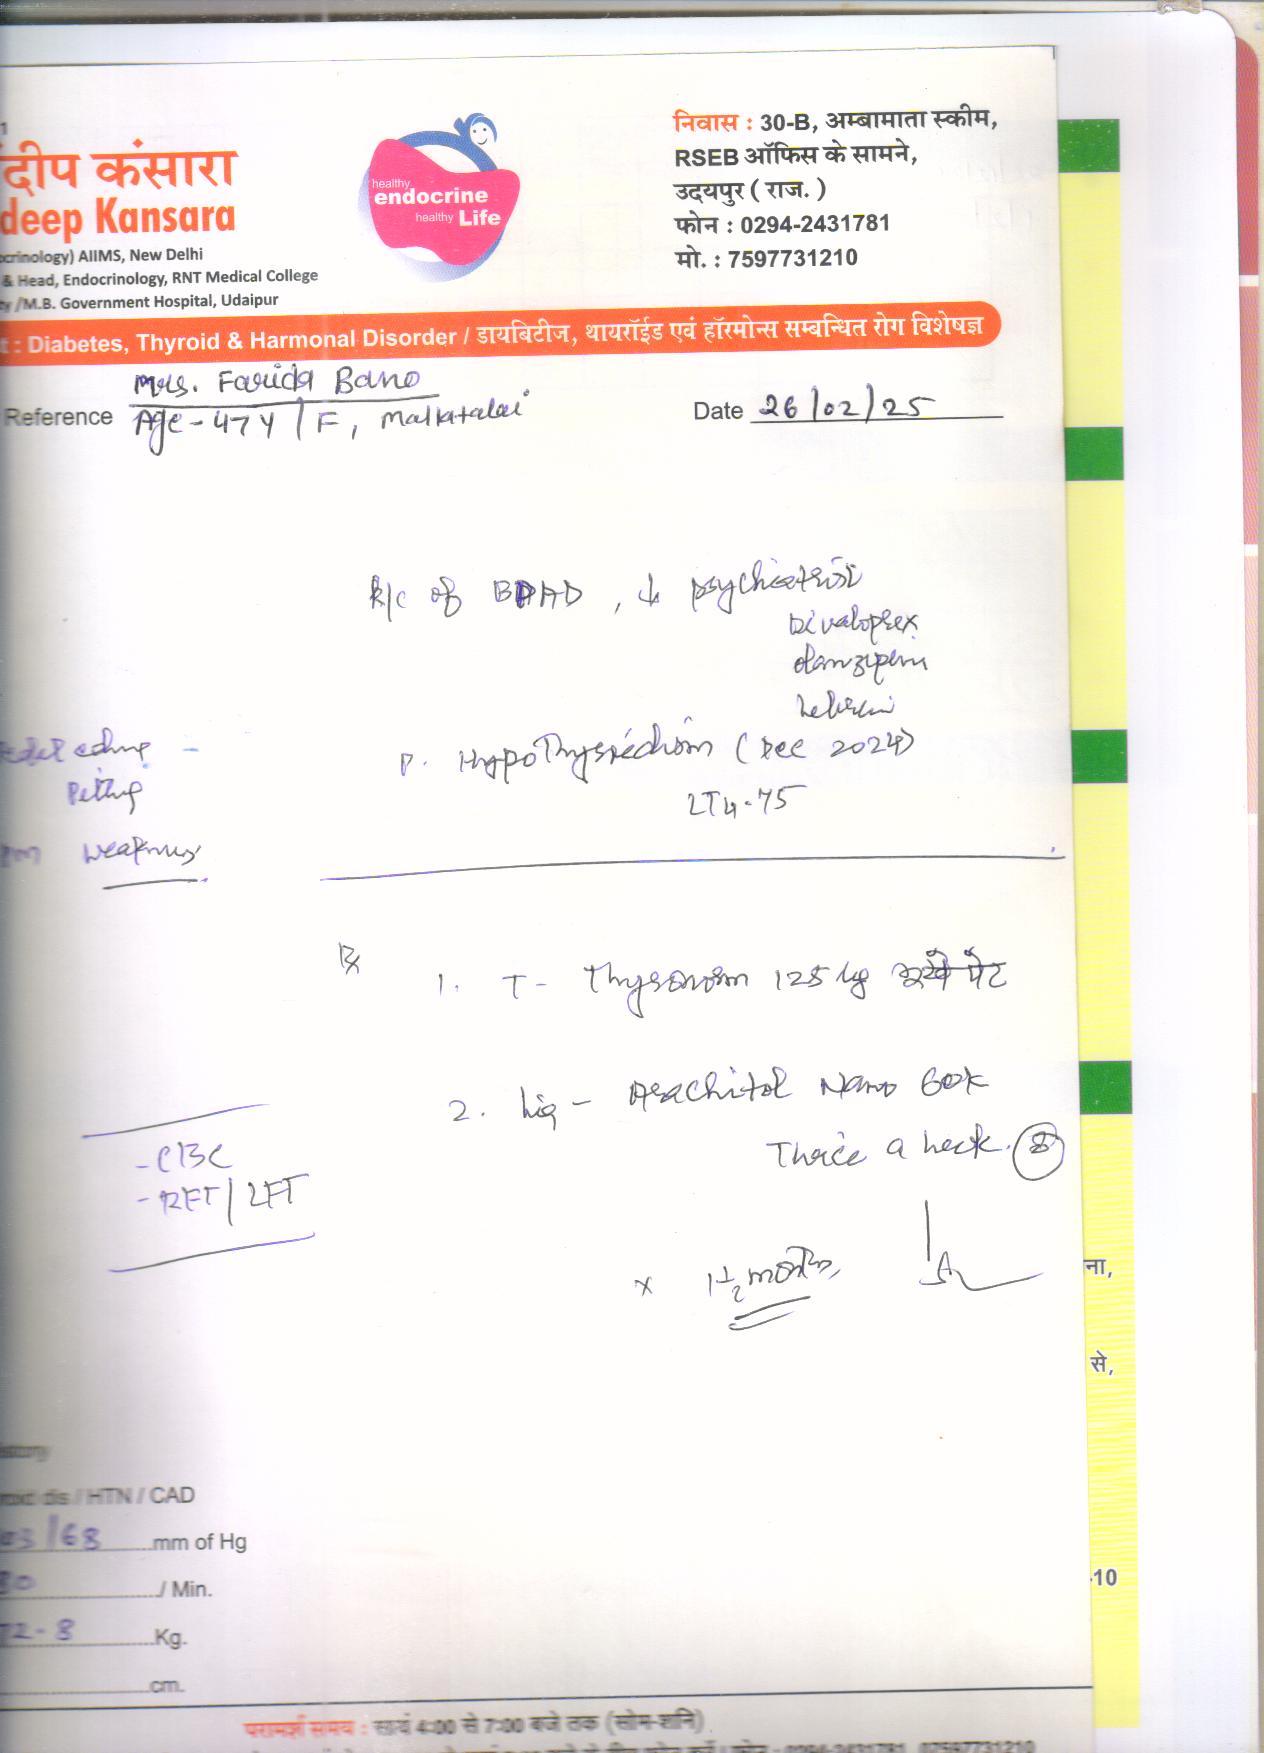 दीप कंसारा
deep Kansara
crinology) AIIMS, New Delhi
& Head, Endocrinology, RNT Medical College
/M.B. Government Hospital, Udaipur
healthy
endocrine
healthy Life
निवास : 30-B, अम्बामाता स्कीम,
RSEB ऑफिस के सामने,
उदयपुर ( राज. )
फोन : 0294-2431781
मो. : 7597731210
t : Diabetes, Thyroid & Harmonal Disorder / डायबिटीज, थायरॉईड एवं हॉरमोन्स सम्बन्धित रोग विशेषज्ञ
Mrs. Farida Bano
Reference Age - 47 Y / F, Mallatalai
Date 26/02/25
K/C of BPAD, ↓ psychiatrist
Divaloprex
P. Hypothyroidism (Dec 2024)
LT4-75
Pitting
weakness
Rx
1. T - Thyronorm 125 µg पेट
2. Liq - Arachitol Nano 60K
Thrice a week. 8
- CBC
- RFT / LFT
x 1 1/2 months,
dis / HTN / CAD
/68 mm of Hg
80 / Min.
72-8 Kg.
cm.
ना,
से,
-10
परामर्श समय : सायं 4:00 से 7:00 बजे तक (सोम-शनि)